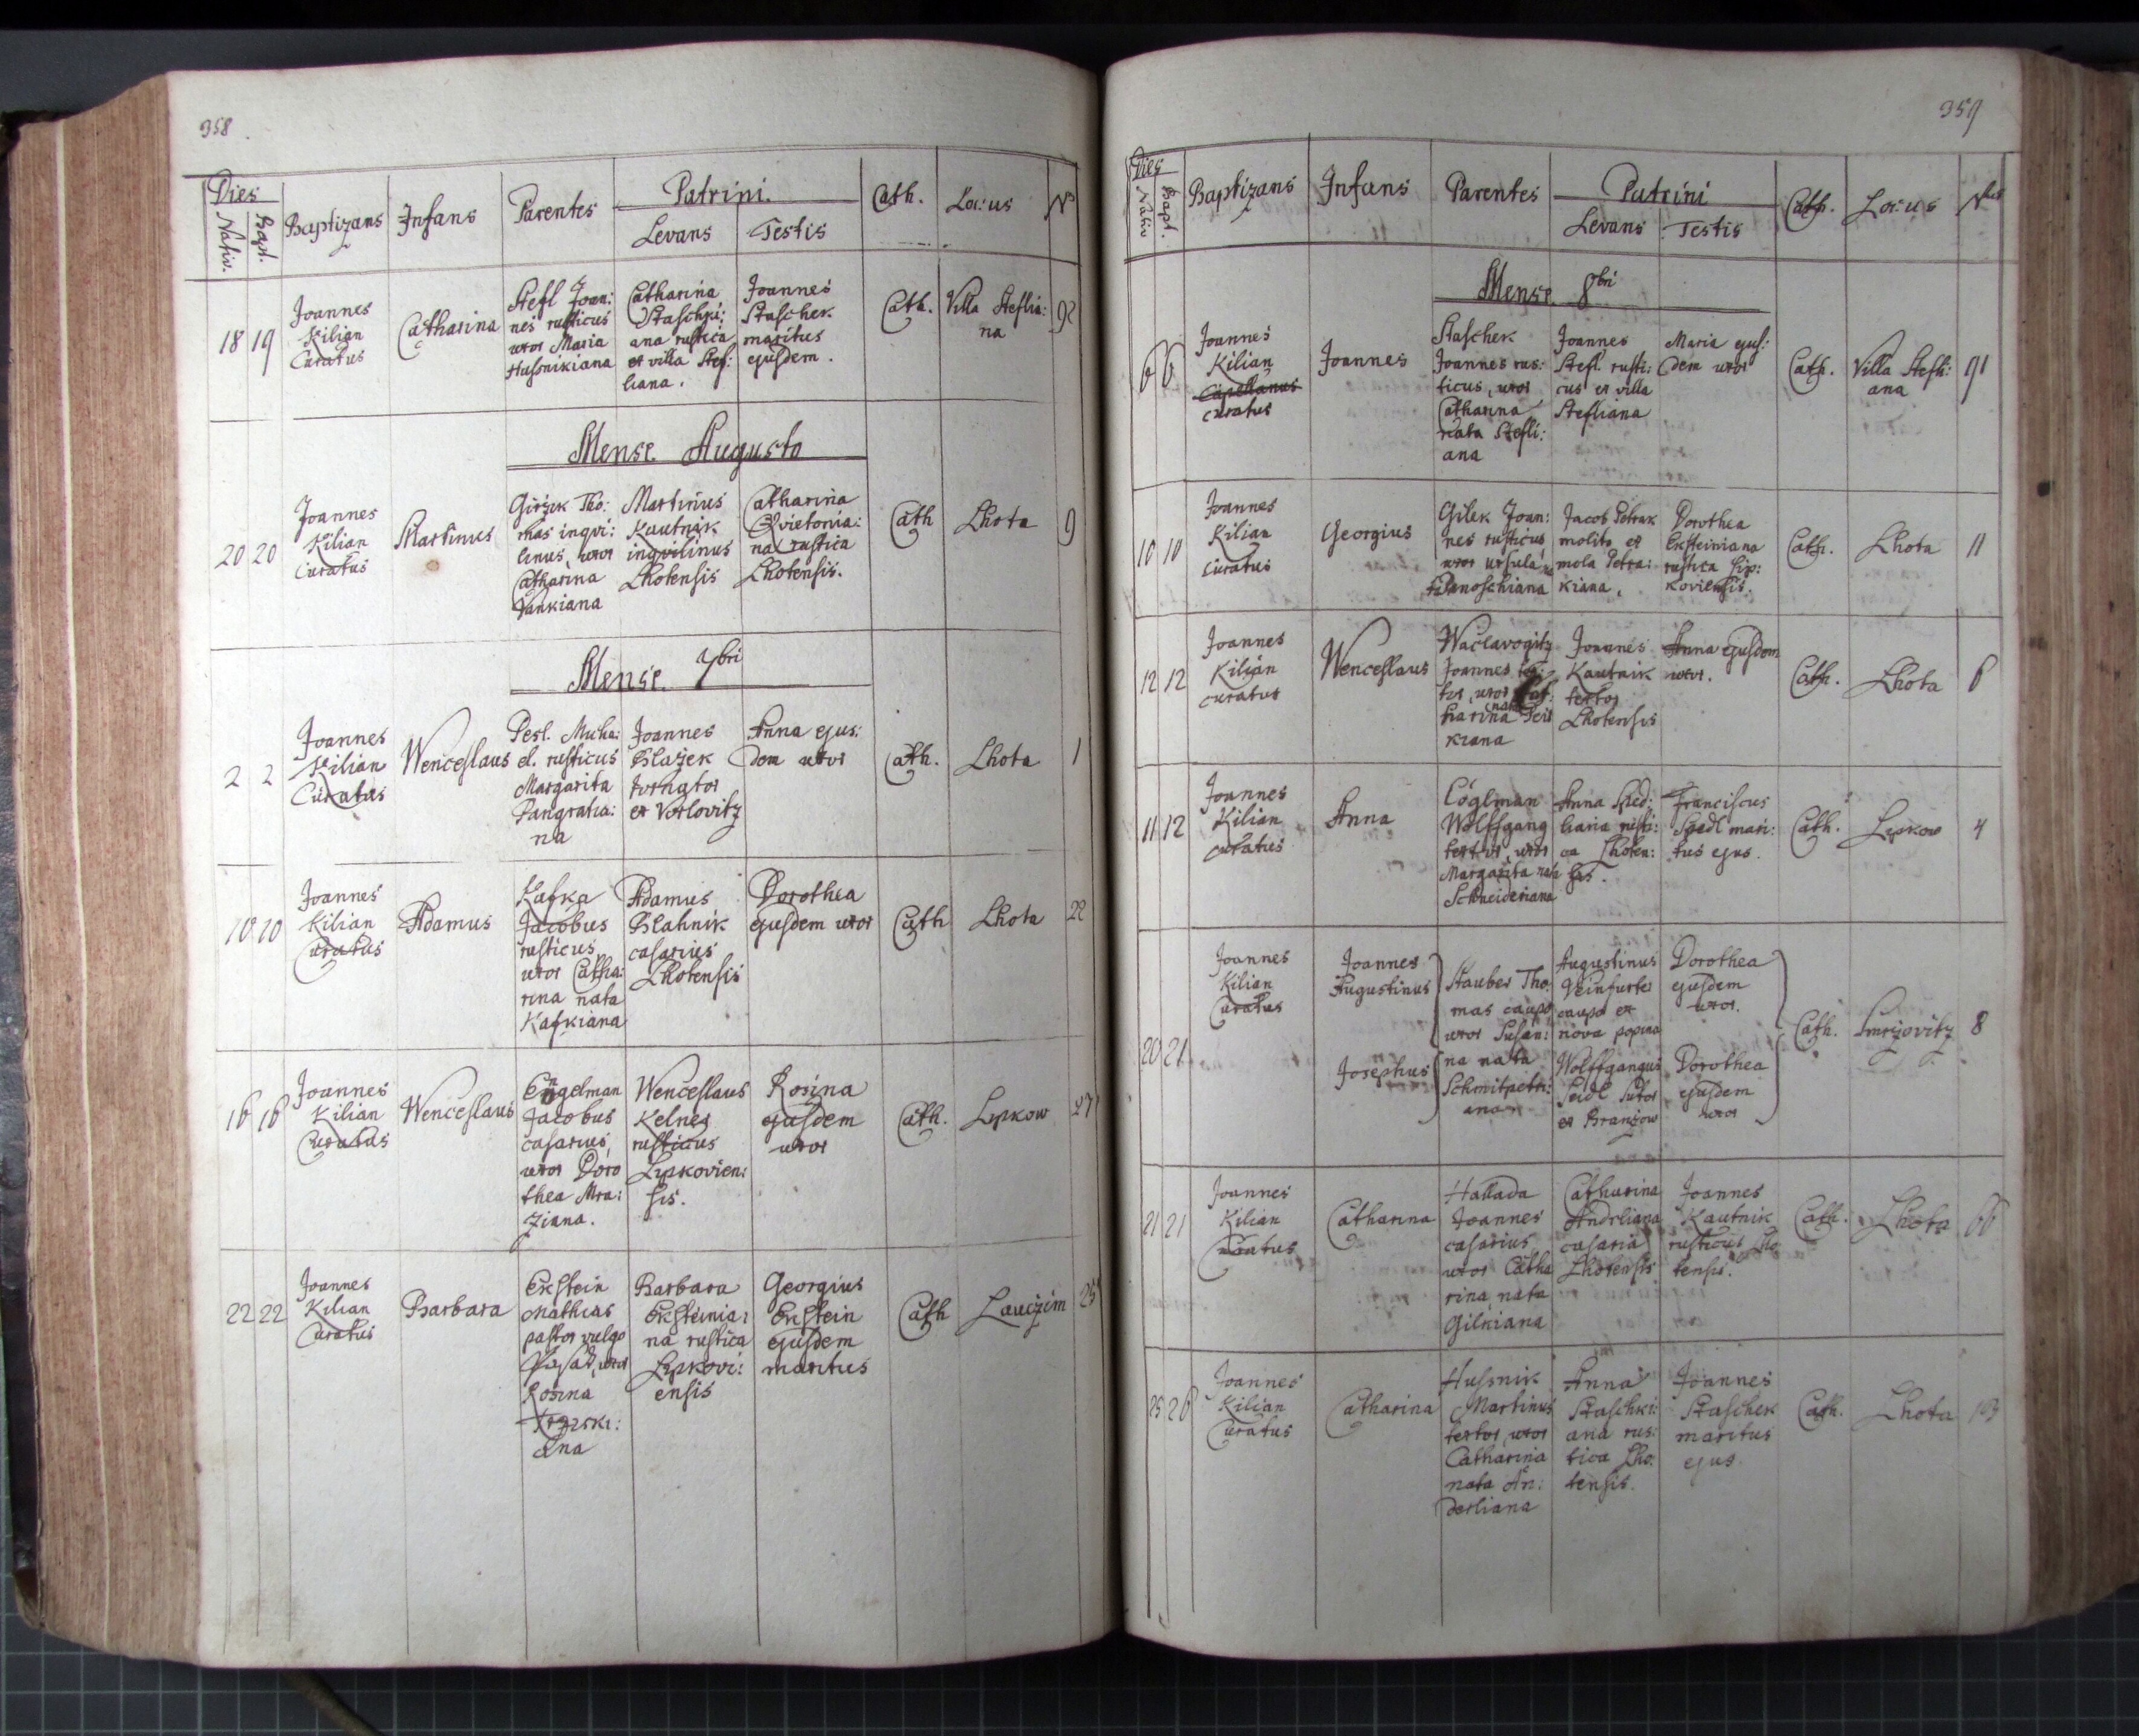 358
Dies
Nativ.
Bapt.
Baptizans
Infans
Parentes
Patrini.
Levans
Testis
Cath.
Locus
Nr
18
19
Joannes
Kilian
Curatus
Catharina
Stefl Joan:
nes rusticus
uxor Maria
Hussnikiana
Catharina
Staschki:
ana rustica
ex villa Stef:
liana.
Joannes
Staschek
maritus
ejusdem.
Cath.
Villa Steflia:
na
92
Mense Augusto
20
20
Joannes
Kilian
Curatus
Martinus
Girzik Tho:
mas inqvi:
linus, uxor
Catharina
Vankiana
Martinus
Kautnik
inqvilinus
Lhotensis
Catharina
Qvietonia:
na rustica
Lhotensis.
Cath
Lhota
9
Mense 7bri
2
2
Joannes
Kilian
Curatus
Wenceslaus
Pesl. Micha:
el. rusticus
Margarita
Pangratia:
na
Joannes
Blazek
ex Vorlovitz
Anna ejus:
dem uxor
Cath.
Lhota
1
10
10
Joannes
Kilian
Curatus
Adamus
Kafka
Jacobus
rusticus,
uxor Catha:
rina nata
Kafkiana
Adamus
Blahnik
casarius
Lhotensis
Dorothea
ejusdem uxor
Cath
Lhota
22
16
16
Joannes
Kilian
Curatus
Wenceslaus
Engelman
Jacobus
casarius,
uxor Doro
thea Mra:
ziana.
Wenceslaus
Kelner
rusticus
Lypkovien:
sis.
Rosina
ejusdem
uxor
Cath.
Lypkow
27
22
22
Joannes
Kilian
Curatus
Barbara
Ekstein
Mathias
pastor vulgo
uxor
Rosina
ana
Barbara
Eksteinia:
na rustica
Lypkovi:
ensis
Georgius
Ekstein
ejusdem
maritus
Cath
Lauczim
25
359
Dies
Nativ
Bapt.
Baptizans
Infans
Parentes
Patrini
Levans
Testis
Cath.
Locus
Nrus
Mense 8bri
6
6
Joannes
Kilian
Capellanus
curatus
Joannes
Staschek
Joannes rus:
ticus, uxor
Catharina
nata Stefli:
ana
Joannes
Stefl. rusti:
cus ex villa
Stefliana
Maria ejus:
dem uxor
Cath.
Villa Stefli:
ana
91
10
10
Joannes
Kilian
curatus
Georgius
Gilek Joan:
nes rusticus
uxor Ursula
Janoschiana
Jacob Petrak
molitor ex
mola Petra:
kiana.
Dorothea
Eksteiniana
rustica Lip:
koviensis.
Cath.
Lhota
11
12
12
Joannes
Kilian
curatus
Wenceslaus
Waclavogitz
Joannes tex:
tor, uxor Cat:
harina nata
kiana
Joannes
Kautnik
textor
Lhotensis
Anna ejusdem
uxor.
Cath.
Lhota
6
11
12
Joannes
Kilian
curatus
Anna
Cöglman
Wolffgang
textor, uxor
Margarita nata
Schneideriana
Anna Sked:
liana rusti:
ca Lhoten:
sis.
Franciscus
Skedl mari:
tus ejus.
Cath.
Lypkow
4
20
21
Joannes
Kilian
Curatus
Joannes
Augustinus
Josephus
Stauber Tho:
mas caupo
uxor Susan:
na nata
Schmitpetri:
ana
Augustinus
Veinfurter
caupo ex
nova popina
Wolffgangus
Seidl Sutor
ex Branzow
Dorothea
ejusdem
uxor.
Dorothea
ejusdem
uxor
Cath.
Smrzovitz
8
21
21
Joannes
Kilian
Curatus
Catharina
Hallada
Joannes
casarius
uxor Catha
rina nata
Gilkiana
Catharina
Andrliana
casaria
Lhotensis
Joannes
Kautnik
rusticus Lho
tensis.
Cath.
Lhota
66
25
26
Joannes
Kilian
Curatus
Catharina
Hussnik
Martinus
textor, uxor
Catharina
nata An:
derliana
Anna
Staschki:
ana rus:
tica Lho:
tensis.
Joannes
Staschek
maritus
ejus.
Cath.
Lhota